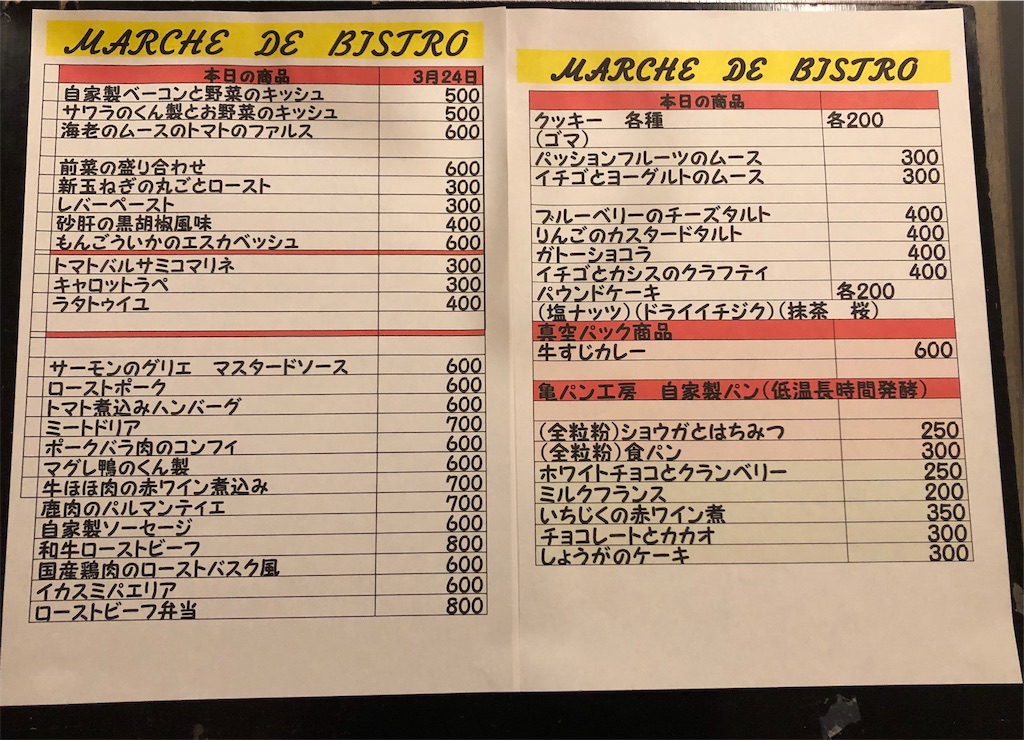 MARCHE DE BISTRO
本日の商品 3月24日
自家製ベーコンと野菜のキッシュ 500
サワラのくん製とお野菜のキッシュ 500
海老のムースのトマトのファルス 600
前菜の盛り合わせ 600
新玉ねぎの丸ごとロースト 300
レバーペースト 300
砂肝の黒胡椒風味 400
もんごういかのエスカベッシュ 600
トマトバルサミコマリネ 300
キャロットラペ 300
ラタトゥイユ 400
サーモンのグリエ マスタードソース 600
ローストポーク 600
トマト煮込みハンバーグ 600
ミートドリア 700
ポークバラ肉のコンフィ 600
マグレ鴨のくん製 600
牛ほほ肉の赤ワイン煮込み 700
鹿肉のパルマンティエ 700
自家製ソーセージ 600
和牛ローストビーフ 800
国産鶏肉のローストバスク風 600
イカスミパエリア 600
ローストビーフ弁当 800
MARCHE DE BISTRO
本日の商品
クッキー 各種 各200
(ゴマ)
パッションフルーツのムース 300
イチゴとヨーグルトのムース 300
ブルーベリーのチーズタルト 400
りんごのカスタードタルト 400
ガトーショコラ 400
イチゴとカシスのクラフティ 400
パウンドケーキ 各200
(塩ナッツ)(ドライイチジク)(抹茶 桜)
真空パック商品
牛すじカレー 600
亀パン工房 自家製パン(低温長時間発酵)
(全粒粉)ショウガとはちみつ 250
(全粒粉)食パン 300
ホワイトチョコとクランベリー 250
ミルクフランス 200
いちじくの赤ワイン煮 350
チョコレートとカカオ 300
しょうがのケーキ 300